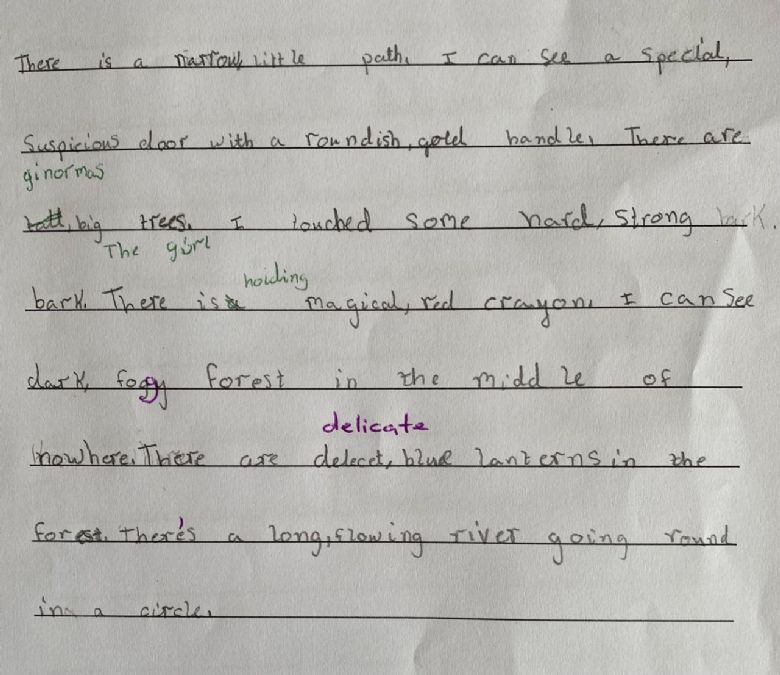 There is a narrow, little path. I can see a special,
Suspicious door with a roundish, gold handle. There are
ginormas
tall, big trees. I touched some hard, strong bark.
The girl
holding
bark. There is a magical, red crayon. I can see
dark, foggy forest in the middle of
delicate
nowhere. There are delecet, blue lanterns in the
forest. there's a long, flowing river going round
in a circle.